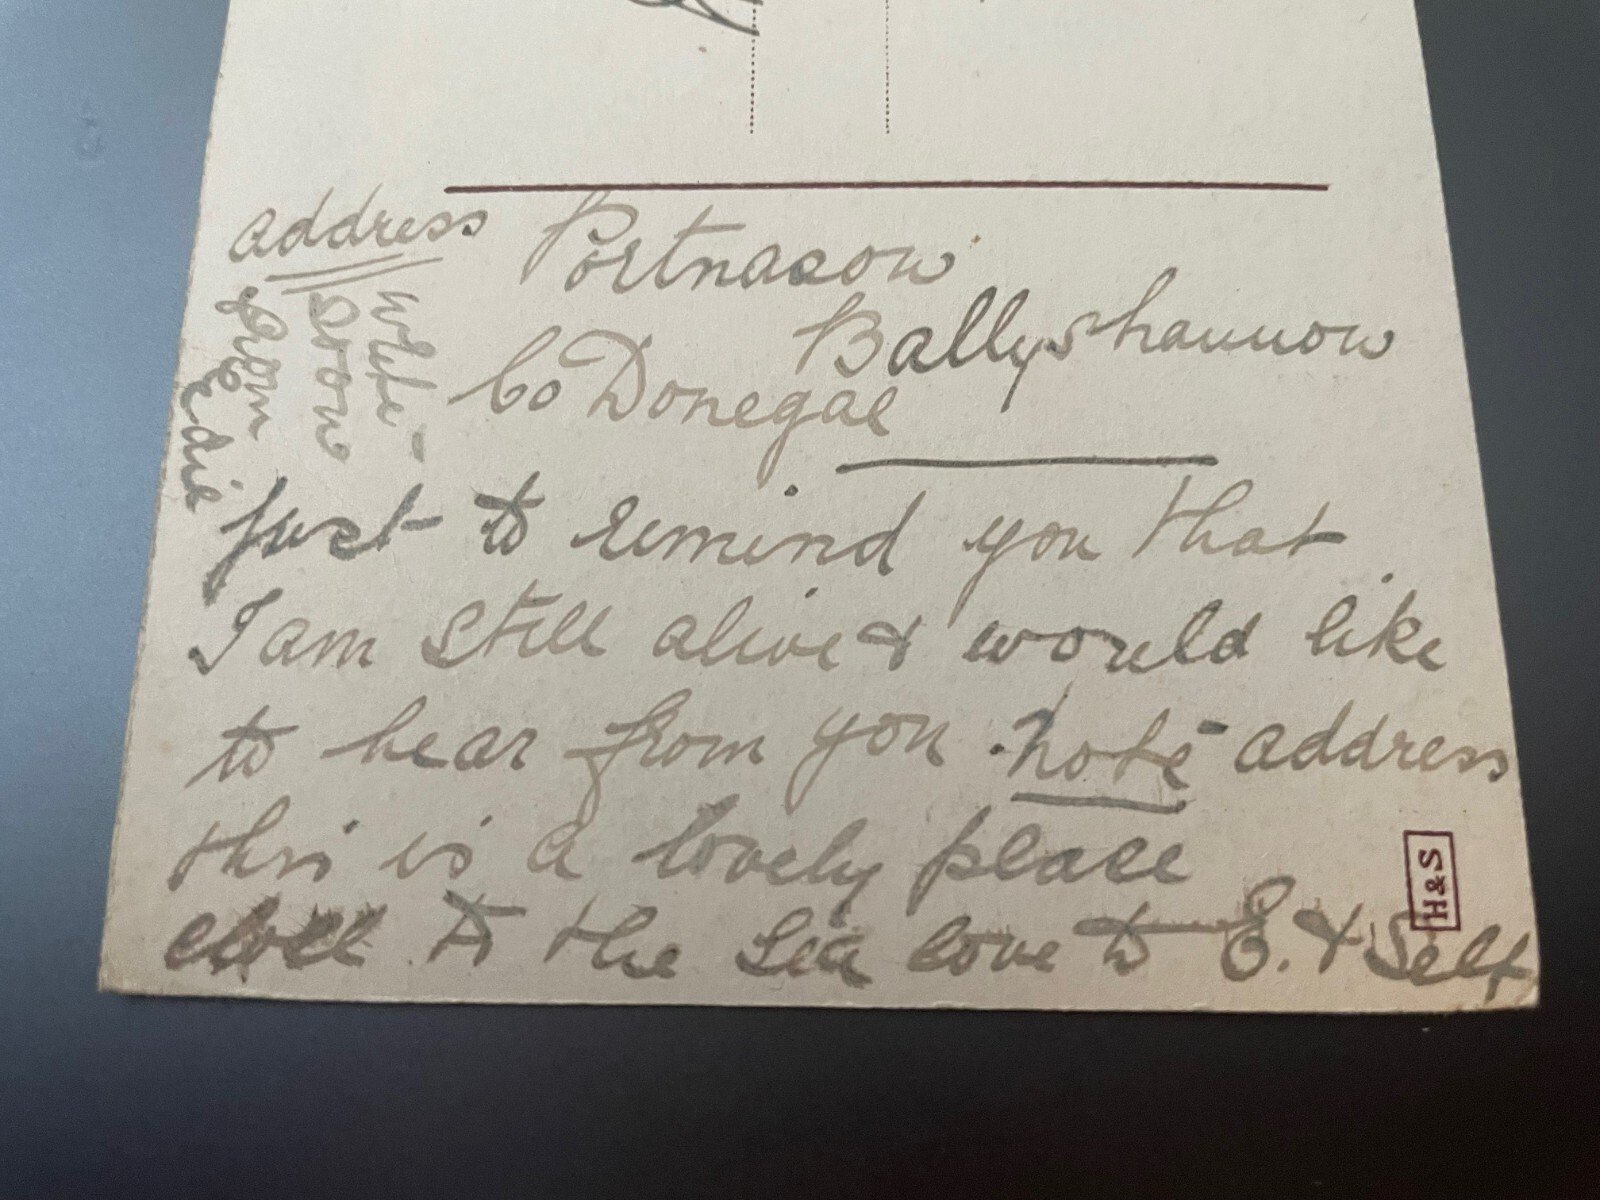 address Portnason
Ballyshannon
Co Donegal
write
soon
from
Edie
just to remind you that
I am still alive & would like
to hear from you. note address
this is a lovely place
close to the sea love to E. & Self
H&S